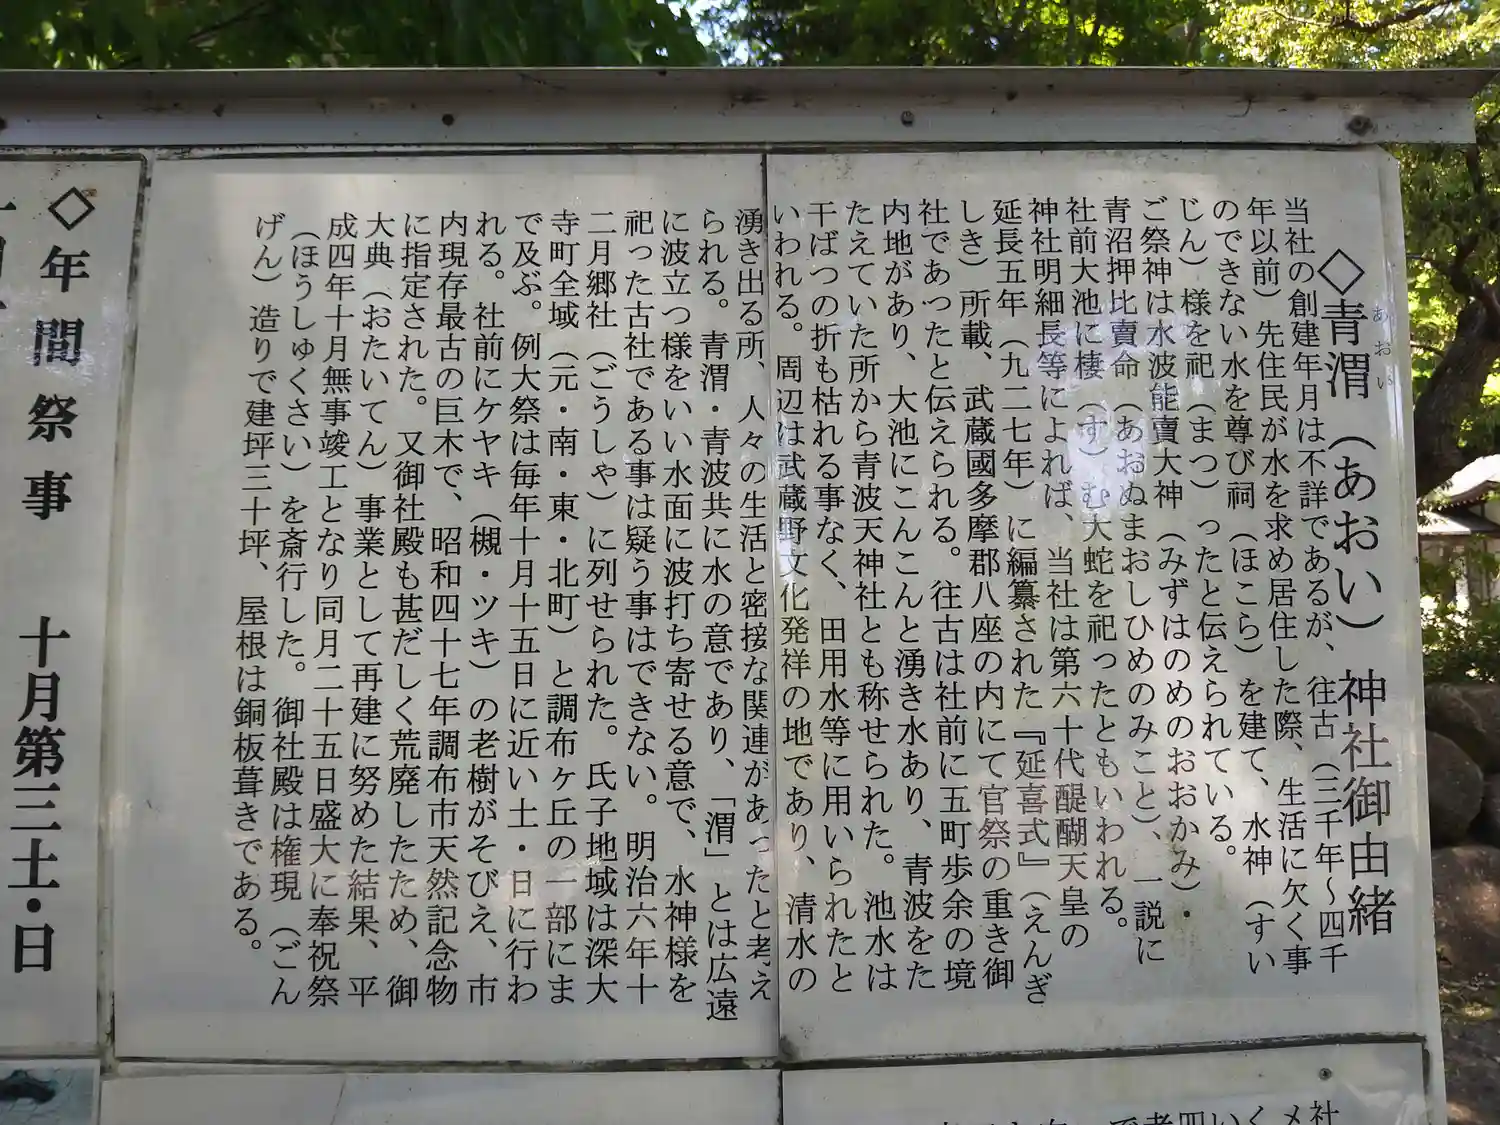 ◇青渭(あおい)神社御由緒
あおい
当社の創建年月は不詳であるが、往古(三千年〜四千
年以前)先住民が水を求め居住した際、生活に欠く事
のできない水を尊び祠(ほこら)を建て、水神(すい
じん)様を祀(まつ)ったと伝えられている。
ご祭神は水波能賣大神(みずはのめのおおかみ)・
青沼押比賣命(あおぬまおしひめのみこと)、一説に
社前大池に棲(す)む大蛇を祀ったともいわれる。
神社明細長等によれば、当社は第六十代醍醐天皇の
延長五年(九二七年)に編纂された『延喜式』(えんぎ
しき)所載、武蔵國多摩郡八座の内にて官祭の重き御
社であつたと伝えられる。往古は社前に五町歩余の境
内地があり、大池にこんこんと湧き水あり、青波をた
たえていた所から青波天神社とも称せられた。池水は
干ばつの折も枯れる事なく、田用水等に用いられたと
いわれる。周辺は武蔵野文化発祥の地であり、清水の
湧き出る所、人々の生活と密接な関連があったと考え
られる。青渭・青波共に水の意であり、「渭」とは広遠
に波立つ様をいい水面に波打ち寄せる意で、水神様を
祀った古社である事は疑う事はできない。明治六年十
二月郷社(ごうしゃ)に列せられた。氏子地域は深大
寺町全域(元・南・東・北町)と調布ヶ丘の一部にま
で及ぶ。例大祭は毎年十月十五日に近い土・日に行わ
れる。社前にケヤキ(槻・ツキ)の老樹がそびえ、市
内現存最古の巨木で、昭和四十七年調布市天然記念物
に指定された。又御社殿も甚だしく荒廃したため、御
大典(おたいてん)事業として再建に努めた結果、平
成四年十月無事竣工となり同月二十五日盛大に奉祝祭
(ほうしゅくさい)を斎行した。御社殿は権現(ごん
げん)造りで建坪三十坪、屋根は銅板葺きである。
◇年間祭事
十月第三土・日